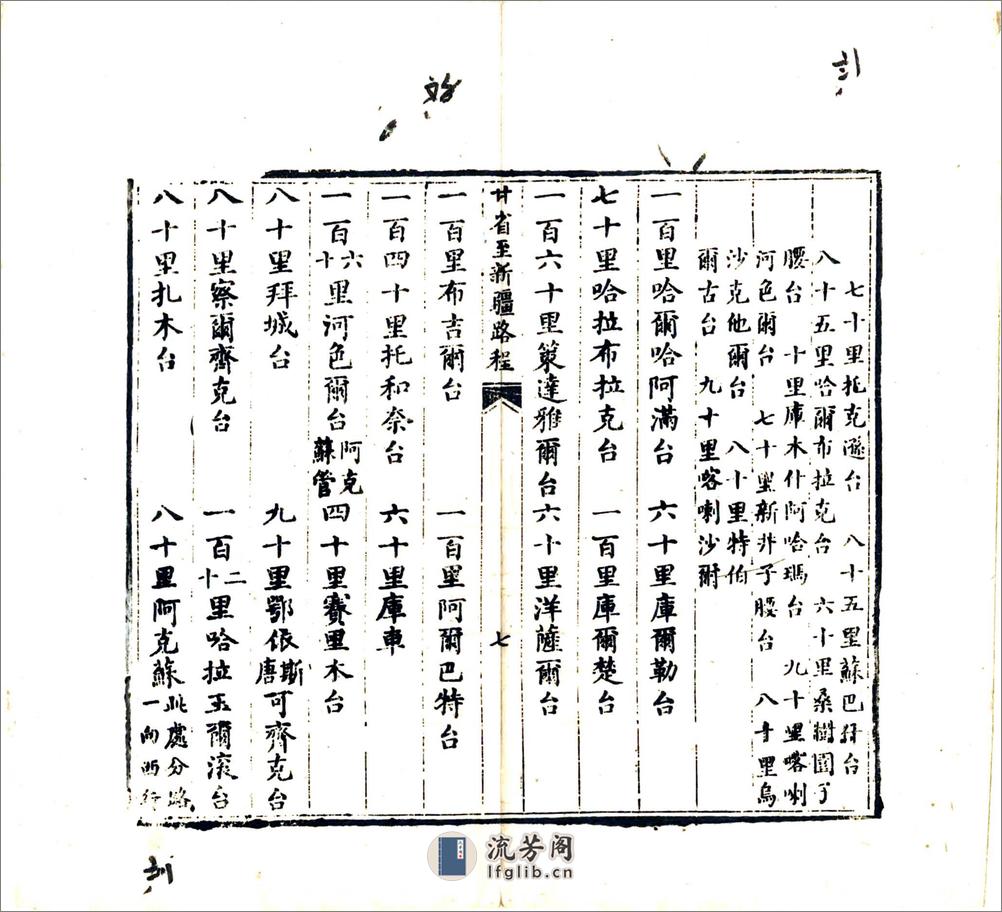 七十里托克遜台　八十五里蘇巴什台
八十五里哈爾布拉克台　六十里桑樹園子
腰台　十里庫木什阿哈瑪台　九十里喀喇
河色爾台　七十里新井子腰台　八十里烏
沙克他爾台　八十里特伯
爾古台　九十里喀喇沙爾
一百里哈爾哈阿滿台　六十里庫爾勒台
七十里哈拉布拉克台　一百里庫爾楚台
一百六十里策達雅爾台　六十里洋薩爾台
甘省至新疆路程　七
一百里布吉爾台　一百里阿爾巴特台
一百四十里托和奈台　六十里庫車
一百六十里河色爾台阿克蘇管　四十里賽里木台
八十里拜城台　九十里鄂依斯唐可齊克台
八十里察爾齊克台　一百二十里哈拉玉爾滾台
八十里扎木台　八十里阿克蘇此處分路一向西行
流芳阁
lfglib.cn